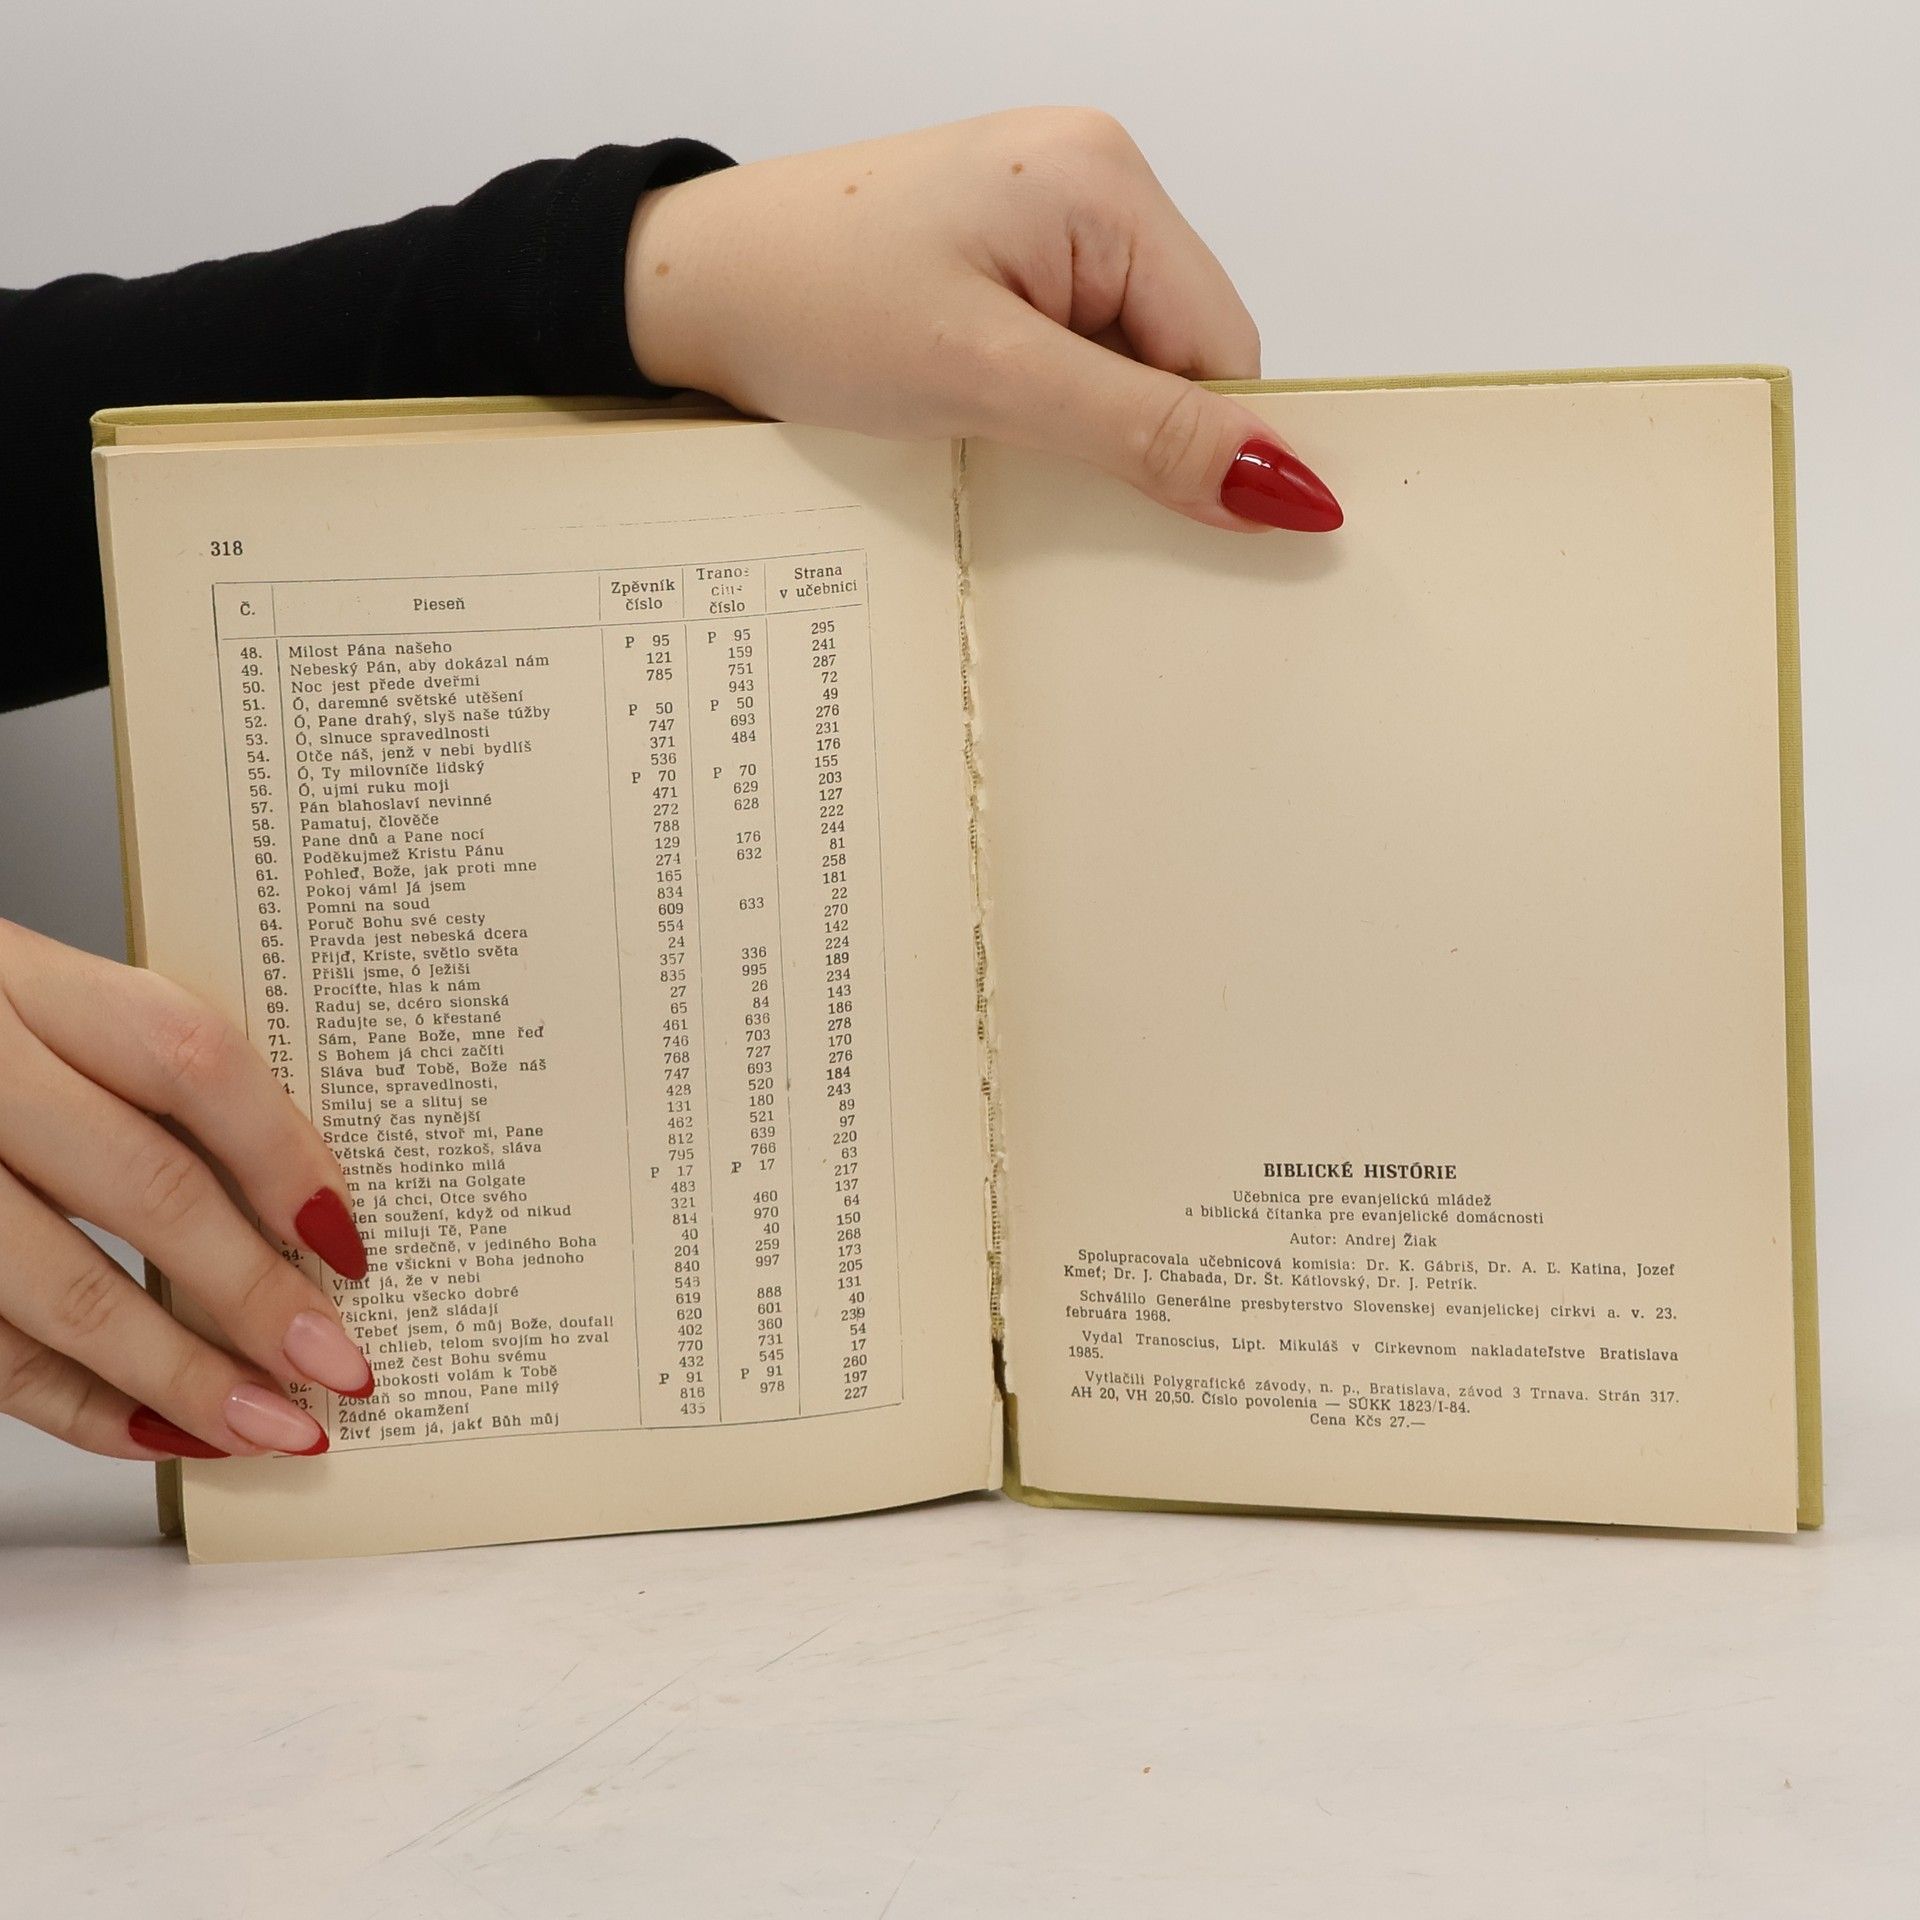 318
Č. Pieseň Zpěvník číslo Tranoscius číslo Strana v učebnici
48. Milost Pána našeho P 95 P 95 295
49. Nebeský Pán, aby dokázal nám 121 159 241
50. Noc jest přede dveřmi 785 751 287
51. Ó, daremné světské utěšení 943 72
52. Ó, Pane drahý, slyš naše túžby P 50 P 50 49
53. Ó, slnuce spravedlnosti 747 693 276
54. Otče náš, jenž v nebi bydlíš 371 484 231
55. Ó, Ty milovníče lidský 536 176
56. Ó, ujmi ruku moji P 70 P 70 155
57. Pán blahoslaví nevinné 471 629 203
58. Pamatuj, člověče 272 628 127
59. Pane dnů a Pane nocí 788 222
60. Poděkujmež Kristu Pánu 129 176 244
61. Pohleď, Bože, jak proti mne 274 632 81
62. Pokoj vám! Já jsem 165 258
63. Pomni na soud 834 181
64. Poruč Bohu své cesty 609 633 22
65. Pravda jest nebeská dcera 554 270
66. Přijď, Kriste, světlo světa 24 142
67. Přišli jsme, ó Ježíši 357 336 224
68. Prociťte, hlas k nám 835 995 189
69. Raduj se, dcéro sionská 27 26 234
70. Radujte se, ó křestané 65 84 143
71. Sám, Pane Bože, mne řeď 461 636 186
72. S Bohem já chci začíti 746 703 278
73. Sláva buď Tobě, Bože náš 768 727 170
4. Slunce, spravedlnosti, 747 693 276
Smiluj se a slituj se 428 520 184
Smutný čas nynější 131 180 243
Srdce čisté, stvoř mi, Pane 462 521 89
větská čest, rozkoš, sláva 812 639 97
astněs hodinko milá 795 766 220
m na kríži na Golgate P 17 P 17 63
be já chci, Otce svého 483 217
den soužení, když od nikud 321 460 137
mi miluji Tě, Pane 814 970 64
84. me srdečně, v jediného Boha 40 40 150
me všickni v Boha jednoho 204 259 268
Vímť já, že v nebi 840 997 173
V spolku všecko dobré 543 205
Všickni, jenž sládají 619 888 131
Tebeť jsem, ó můj Bože, doufal! 620 601 40
al chlieb, telom svojím ho zval 402 360 239
jmež čest Bohu svému 770 731 54
92. ubokosti volám k Tobě 432 545 17
93. Zostaň so mnou, Pane milý P 91 P 91 260
Žádné okamžení 816 978 197
Živť jsem já, jakť Bůh můj 435 227
BIBLICKÉ HISTÓRIE
Učebnica pre evanjelickú mládež
a biblická čítanka pre evanjelické domácnosti
Autor: Andrej Žiak
Spolupracovala učebnicová komisia: Dr. K. Gábriš, Dr. A. Ľ. Katina, Jozef
Kmeť; Dr. J. Chabada, Dr. Št. Kátlovský, Dr. J. Petrík.
Schválilo Generálne presbyterstvo Slovenskej evanjelickej cirkvi a. v. 23.
februára 1968.
Vydal Tranoscius, Lipt. Mikuláš v Cirkevnom nakladateľstve Bratislava
1985.
Vytlačili Polygrafické závody, n. p., Bratislava, závod 3 Trnava. Strán 317.
AH 20, VH 20,50. Číslo povolenia — SÚKK 1823/I-84.
Cena Kčs 27.—